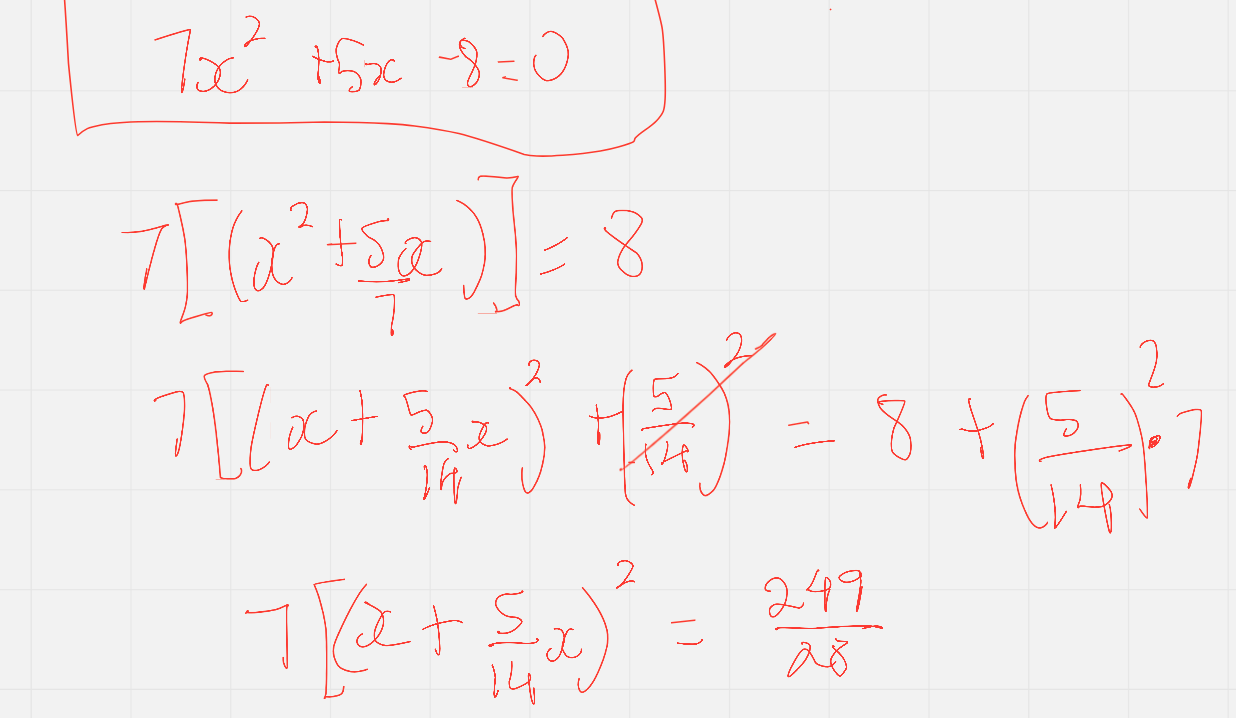 7x² +5x -8=0
7[(x²+5x/7)]=8
7[(x+5/14x)²+(5/14)²=8+(5/14)²•7
7[(x+5/14x)²=249/28